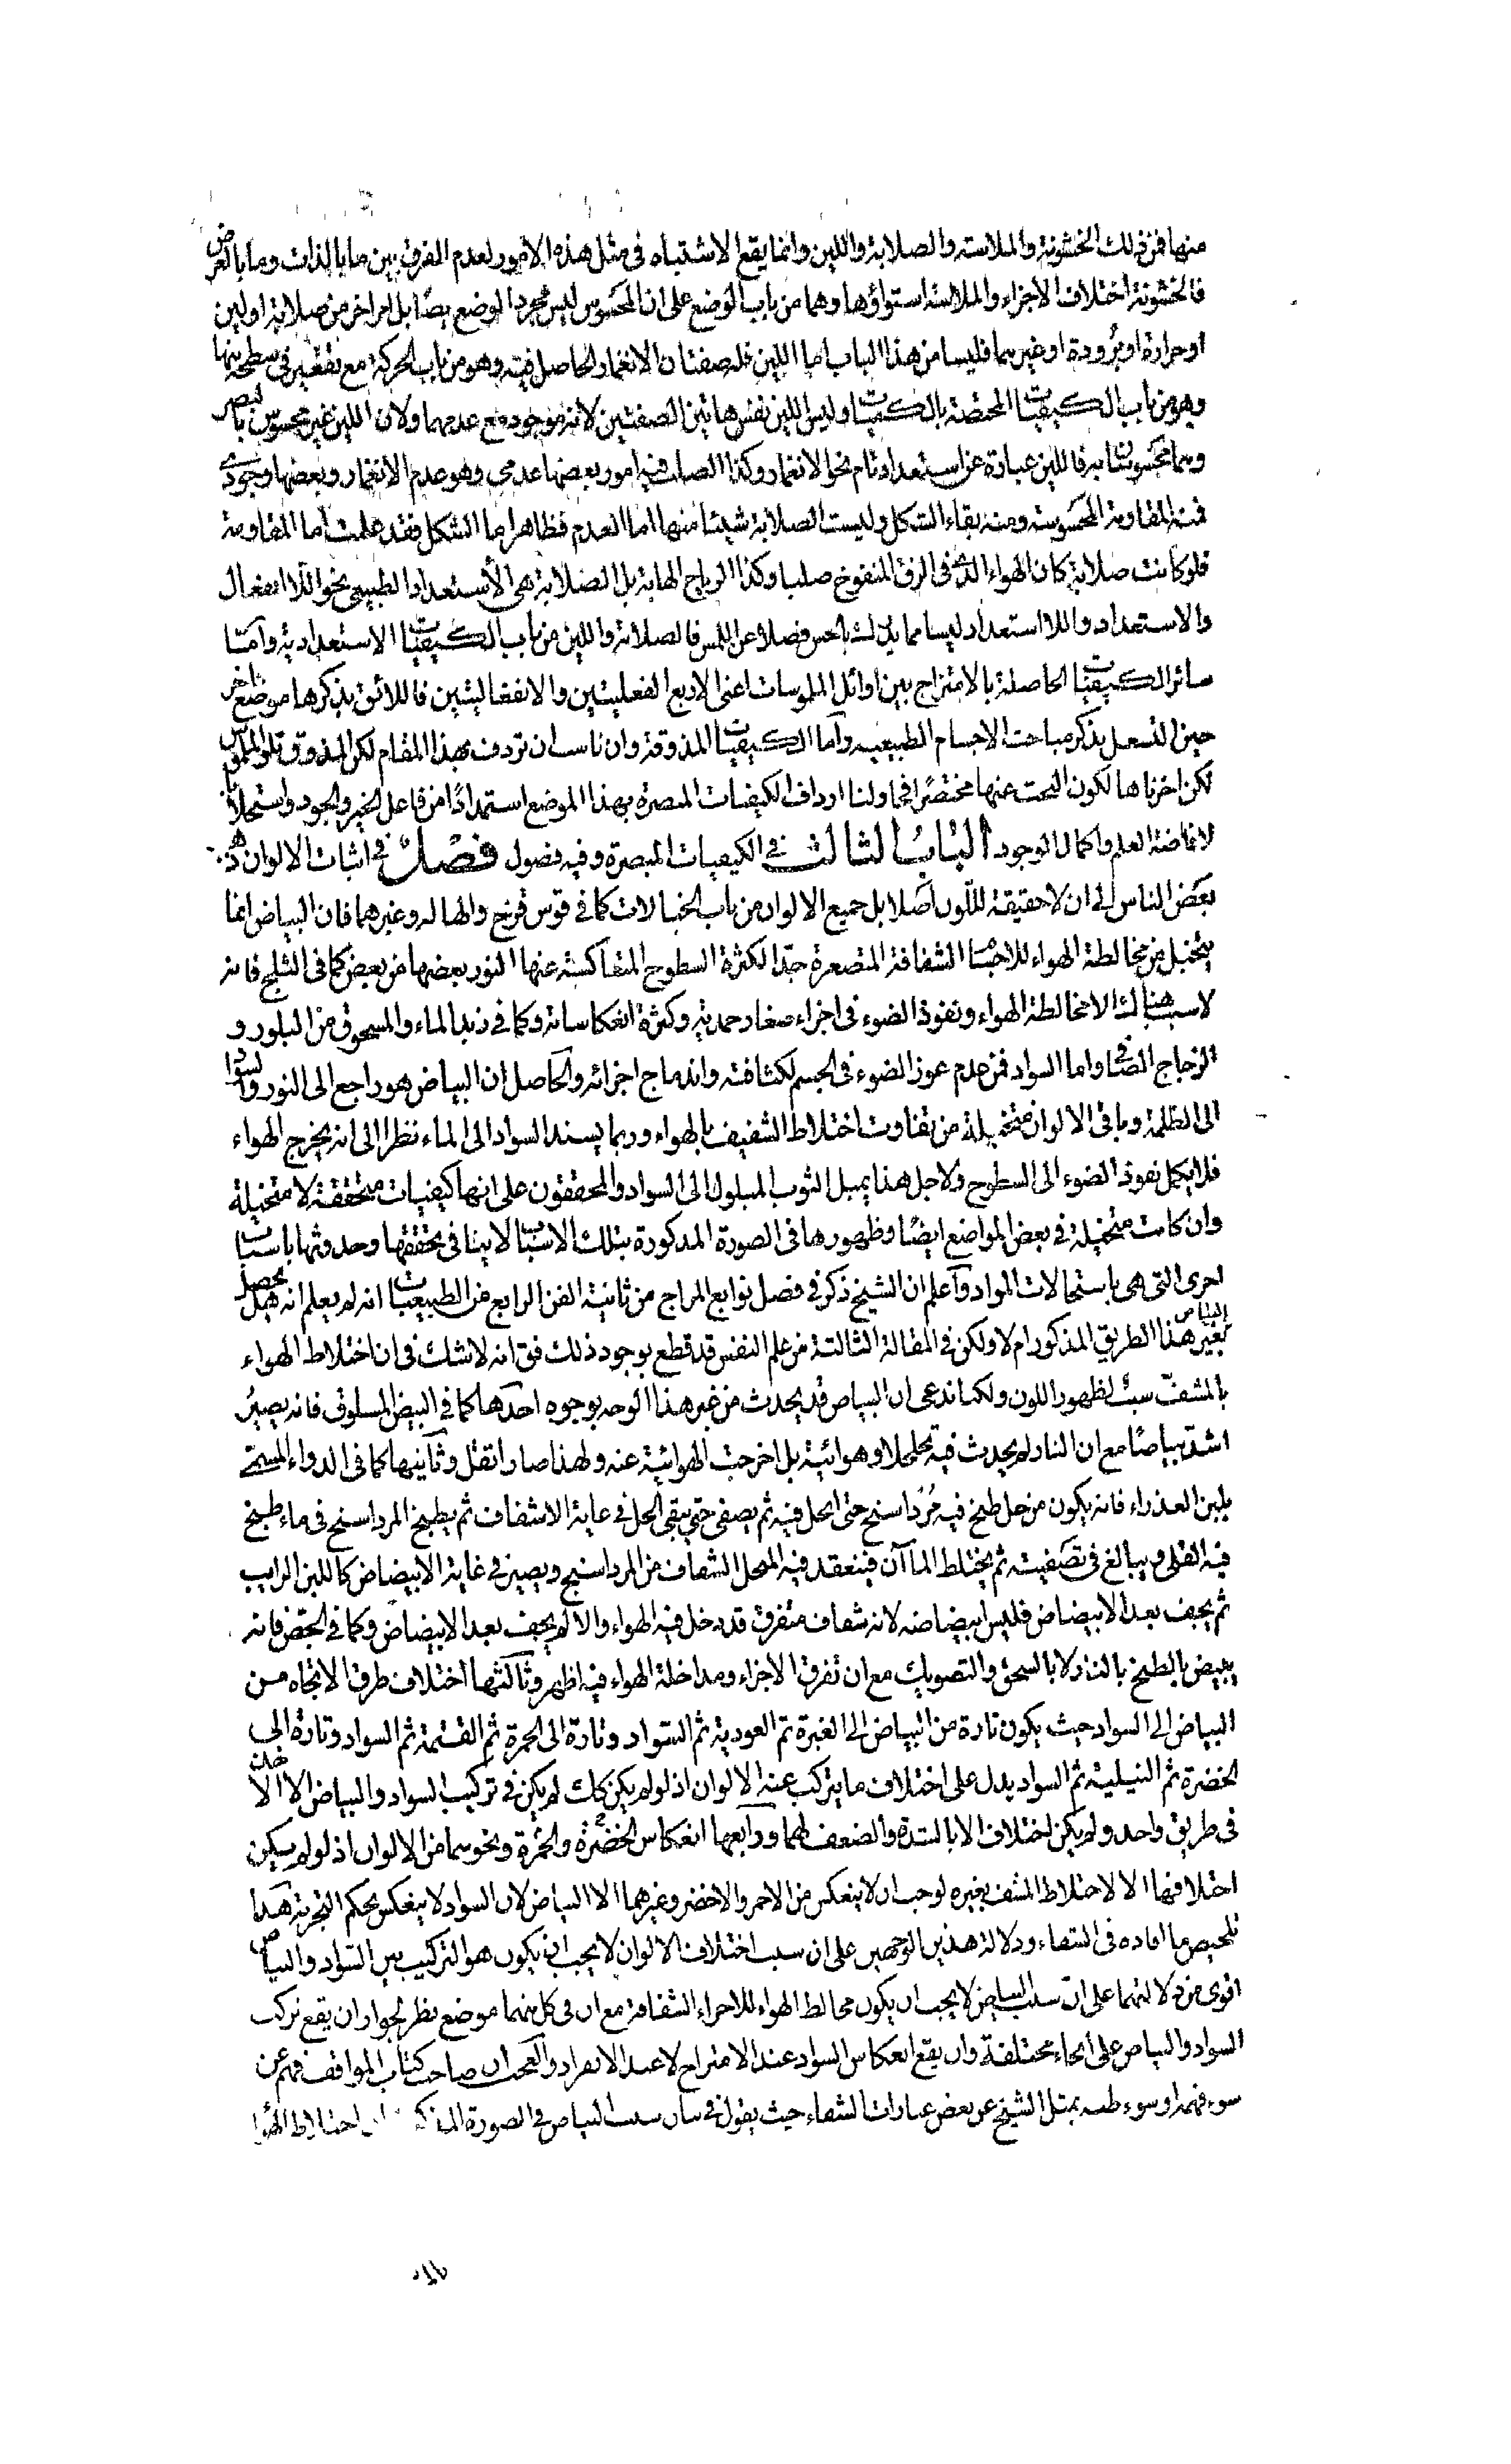 منها فمن ذلك الخشونة والملاسة والصلابة واللين وانما يقع الاشتباه فى مثل هذه الامور لعدم الفرق بين ما بالذات وما بالعرض
فالخشونة اختلاف الاجزاء والملاسة استواؤها وهما من باب الوضع على ان المحسوس ليس مجرد الوضع بل امر اخر من صلابة اولين
او حرارة او برودة او غيرهما فليسا من هذا الباب اما اللين فله صفتان الانغماز الحاصل فيه وهو من باب الحركة مع تقعير فى سطحه
وهو من باب الكيفيات المختصة بالكميات وليس اللين نفس هاتين الصفتين لانه موجود مع عدمهما ولان اللين غير محسوس بالبصر
وهما محسوسان به فاللين عبارة عن استعداد تام نحو الانغماز وكذا الصلب فيه امور بعضها عدمى وهو عدم الانغماز وبعضها وجودى
فمنه المقاومة المحسوسة ومنه بقاء الشكل وليست الصلابة شيئا منها اما العدم فظاهر اما الشكل فقد علمت اما المقاومة
فلو كانت صلابة كان الهواء الذى فى الزق المنفوخ صلبا وكذا الرياح الهابة بل الصلابة هى الاستعداد الطبيعى نحو اللاانفعال
والاستعداد واللااستعداد ليسا مما يدرك بالحس فضلا عن اللمس فالصلابة واللين من باب الكيفيات الاستعدادية وامّا
سائر الكيفيات الحاصلة بالامتزاج بين اوائل الملموسات اعنى الاربع الفعليتين والانفعاليتين فاللائق بذكرها موضع اخر
حين نشتغل بذكر مباحث الاجسام الطبيعيه وامّا الكيفيات المذوقة وان ناسب ان تردف بهذا المقام لكن المذوق تلو الملموس
لكن اخرناها لكون البحث عنها مختصرًا فحاولنا ارداف الكيفيات المبصرة بهذا الموضع استمدادًا من فاعل الخير والجود
لافاضة العلم واكمال الوجود الباب الثالث فى الكيفيات المبصرة وفيه فصول فصل فى اثبات الالوان
بعض الناس الى ان لا حقيقة للّون اصلا بل جميع الالوان من باب الخيالات كما فى قوس قزح والهالة وغيرهما فان البياض انما
يتخيل من مخالطة الهواء للاجسام الشفافة المتصغرة جدّا لكثرة السطوح المتعاكسة عنها النور بعضها من بعض كما فى الثلج فانه
لا سبب هناك الا مخالطة الهواء ونفوذ الضوء فى اجزاء صغار جمدية وكثرة انعكاساته وكما فى زبد الماء والمسحوق من البلور و
الزجاج الصافى واما السواد فمن عدم غور الضوء فى الجسم لكثافته واندماج اجزائه والحاصل ان البياض هو راجع الى النور والسواد
الى الظلمة وباقى الالوان متخيلة من تفاوت اختلاط الشفيف بالهواء وربما يسند السواد الى الماء نظرا الى انه يخرج الهواء
فلا يكمل نفوذ الضوء الى السطوح ولاجل هذا يميل الثوب المبلول الى السواد والمحققون على انها كيفيات متحققة لا متخيلة
وان كانت متخيلة فى بعض المواضع ايضًا وظهورها فى الصورة المذكورة بتلك الاسباب لا ينافى تحققها وحدوثها باسباب
اخرى التى هى باستحالات المواد واعلم ان الشيخ ذكر فى فصل توابع المزاج من ثانية الفن الرابع من الطبيعيات انه لم يعلم انه هل يحصل
البياض بغير هذا الطريق المذكور ام لا ولكن فى المقالة الثالثة من علم النفس قد قطع بوجود ذلك فق انه لا شك فى ان اختلاط الهواء
بالمشف سبب لظهور اللون ولكنا ندعى ان البياض قد يحدث من غير هذا الوجه بوجوه احدها كما فى البيض المسلوق فانه يصير
اشد بياضًا مع ان النار لم يحدث فيه تخلخلا وهوائية بل اخرجت الهوائية عنه ولهذا صار اثقل وثانيها كما فى الدواء المسمّى
بلبن العذراء فانه يكون من خل طبخ فيه مرداسنج حتى انحل فيه ثم يصفى حتى يبقى الخل فى غاية الاشفاف ثم يطبخ المرداسنج فى ماء طبخ
فيه القلى ويبالغ فى تصفيته ثم يختلط الماآن فينعقد فيه المنحل الشفاف من المرداسنج ويصير فى غاية الابيضاض كاللبن الرايب
ثم يجف بعد الابيضاض فليس ابيضاضه لانه شفاف متفرق قد دخل فيه الهواء والا لم يجف بعد الابيضاض وكما فى الجص فانه
يبيض بالطبخ بالنار لا بالسحق والتصويل مع ان تفرق الاجزاء ومداخلة الهواء فيه اظهر وثالثها اختلاف طرق الاتجاه من
البياض الى السواد حيث يكون تارة من البياض الى الغبرة ثم العودية ثم السواد وتارة الى الحمرة ثم القتمة ثم السواد وتارة الى
الخضرة ثم النيلية ثم السواد يدل على اختلاف ما يتركب عنه الالوان اذ لو لم يكن كك لم يكن فى تركيب السواد والبياض الا الاخذ
فى طريق واحد ولم يكن اختلاف الا بالشدة والضعف لهما ورابعها انعكاس الخضرة والحمرة ونحوهما من الالوان اذ لو لم يكن
اختلافها الا لاختلاط المشف بغيره لوجب ان لا ينعكس من الاحمر والاخضر وغيرهما الا البياض لان السواد لا ينعكس بحكم التجربة هذا
تلخيص ما افاده فى الشفاء ودلالة هذين الوجهين على ان سبب اختلاف الالوان لا يجب ان يكون هو التركيب بين السواد والبياض
اقوى من دلالتهما على ان سبب البياض لا يجب ان يكون مخالط الهواء للاجزاء الشفافة مع ان فى كل منهما موضع نظر لجواز ان يقع تركب
السواد والبياض على انحاء مختلفة وان يقع انعكاس السواد عند الامتزاج لا عند الانفراد والعجب ان صاحب كتاب المواقف فهم عن
سوء فهمه او سوء ظنه بمثل الشيخ عن بعض عبارات الشفاء حيث يقول فى بيان سبب البياض فى الصورة اختلاط الهواء